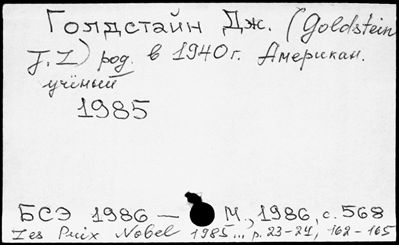 Голдстайн Дж. (Goldstein
J. L) род. в 1940 г. Американ.
учёный
1985
БСЭ 1986 — М., 1986, с. 568
Les Prix Nobel 1985... p. 23-24, 162-165